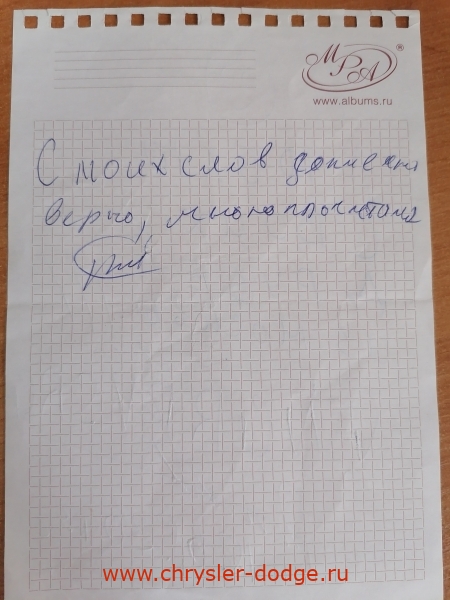 МРА®
www.albums.ru
С моих слов
верно, мною прочитано
www.chrysler-dodge.ru